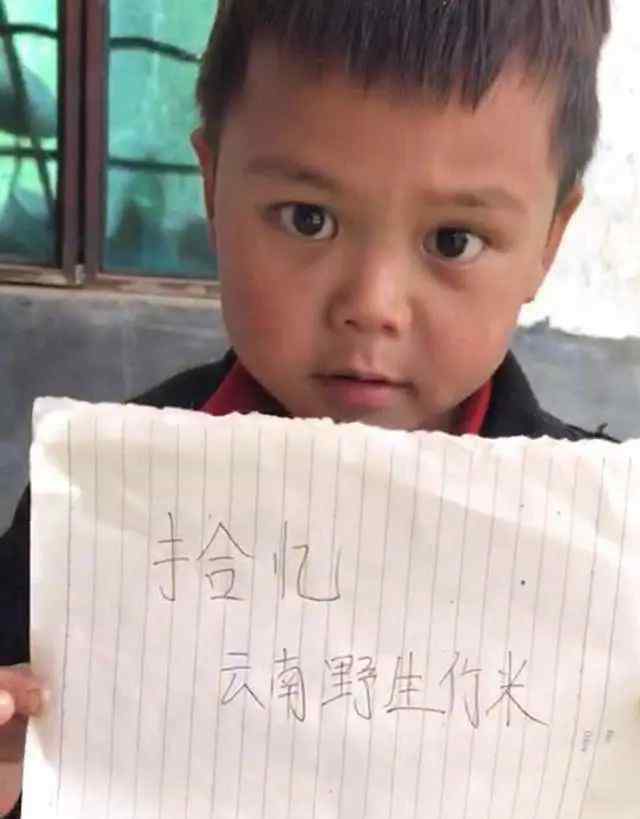 拾忆
云南野生竹米